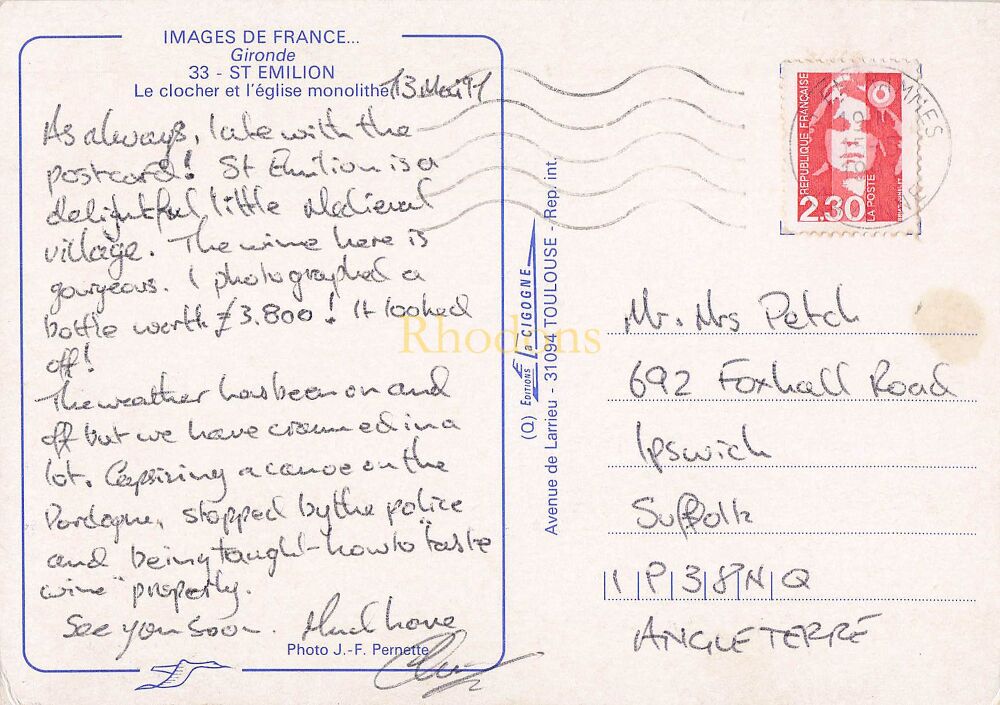 IMAGES DE FRANCE...
Gironde
33 - ST EMILION
Le clocher et l'église monolithe
13 Mai 91
As always, late with the
postcard! St Emilion is a
delightful little Medieval
village. The wine here is
gourgeous. I photographed a
bottle worth £3.800! It looked
off!
The weather has been on and
off but we have crammed in a
lot. Capsizing a canoe on the
Dordogne, stopped by the police
and being taught how to "taste
wine" properly.
See you soon. Much love
Photo J.-F. Pernette
(Q) EDITIONS la CIGOGNE
Avenue de Larrieu - 31094 TOULOUSE - Rep. int.
REPUBLIQUE FRANÇAISE
2,30
LA POSTE
Mr. Mrs Petch
692 Foxhall Road
Ipswich
Suffolk
IP3 8NQ
ANGLETERRE
Rhodons